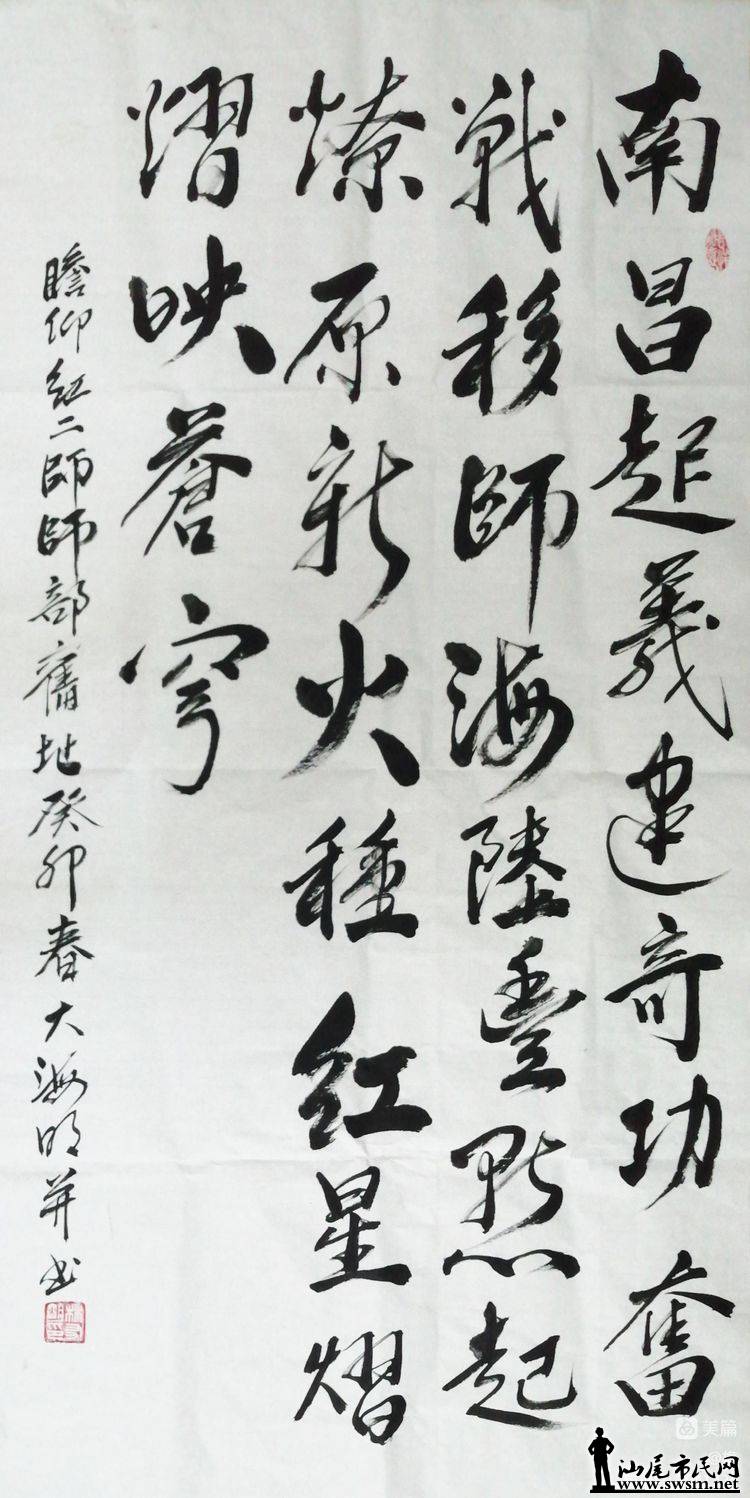 南昌起義建奇功奮
戰移師海陸豐點起
燎原新火種紅星熠
熠映蒼穹
瞻仰紅二師師部舊址癸卯春大海明并书
美篇
汕尾市民网
www.swsm.net